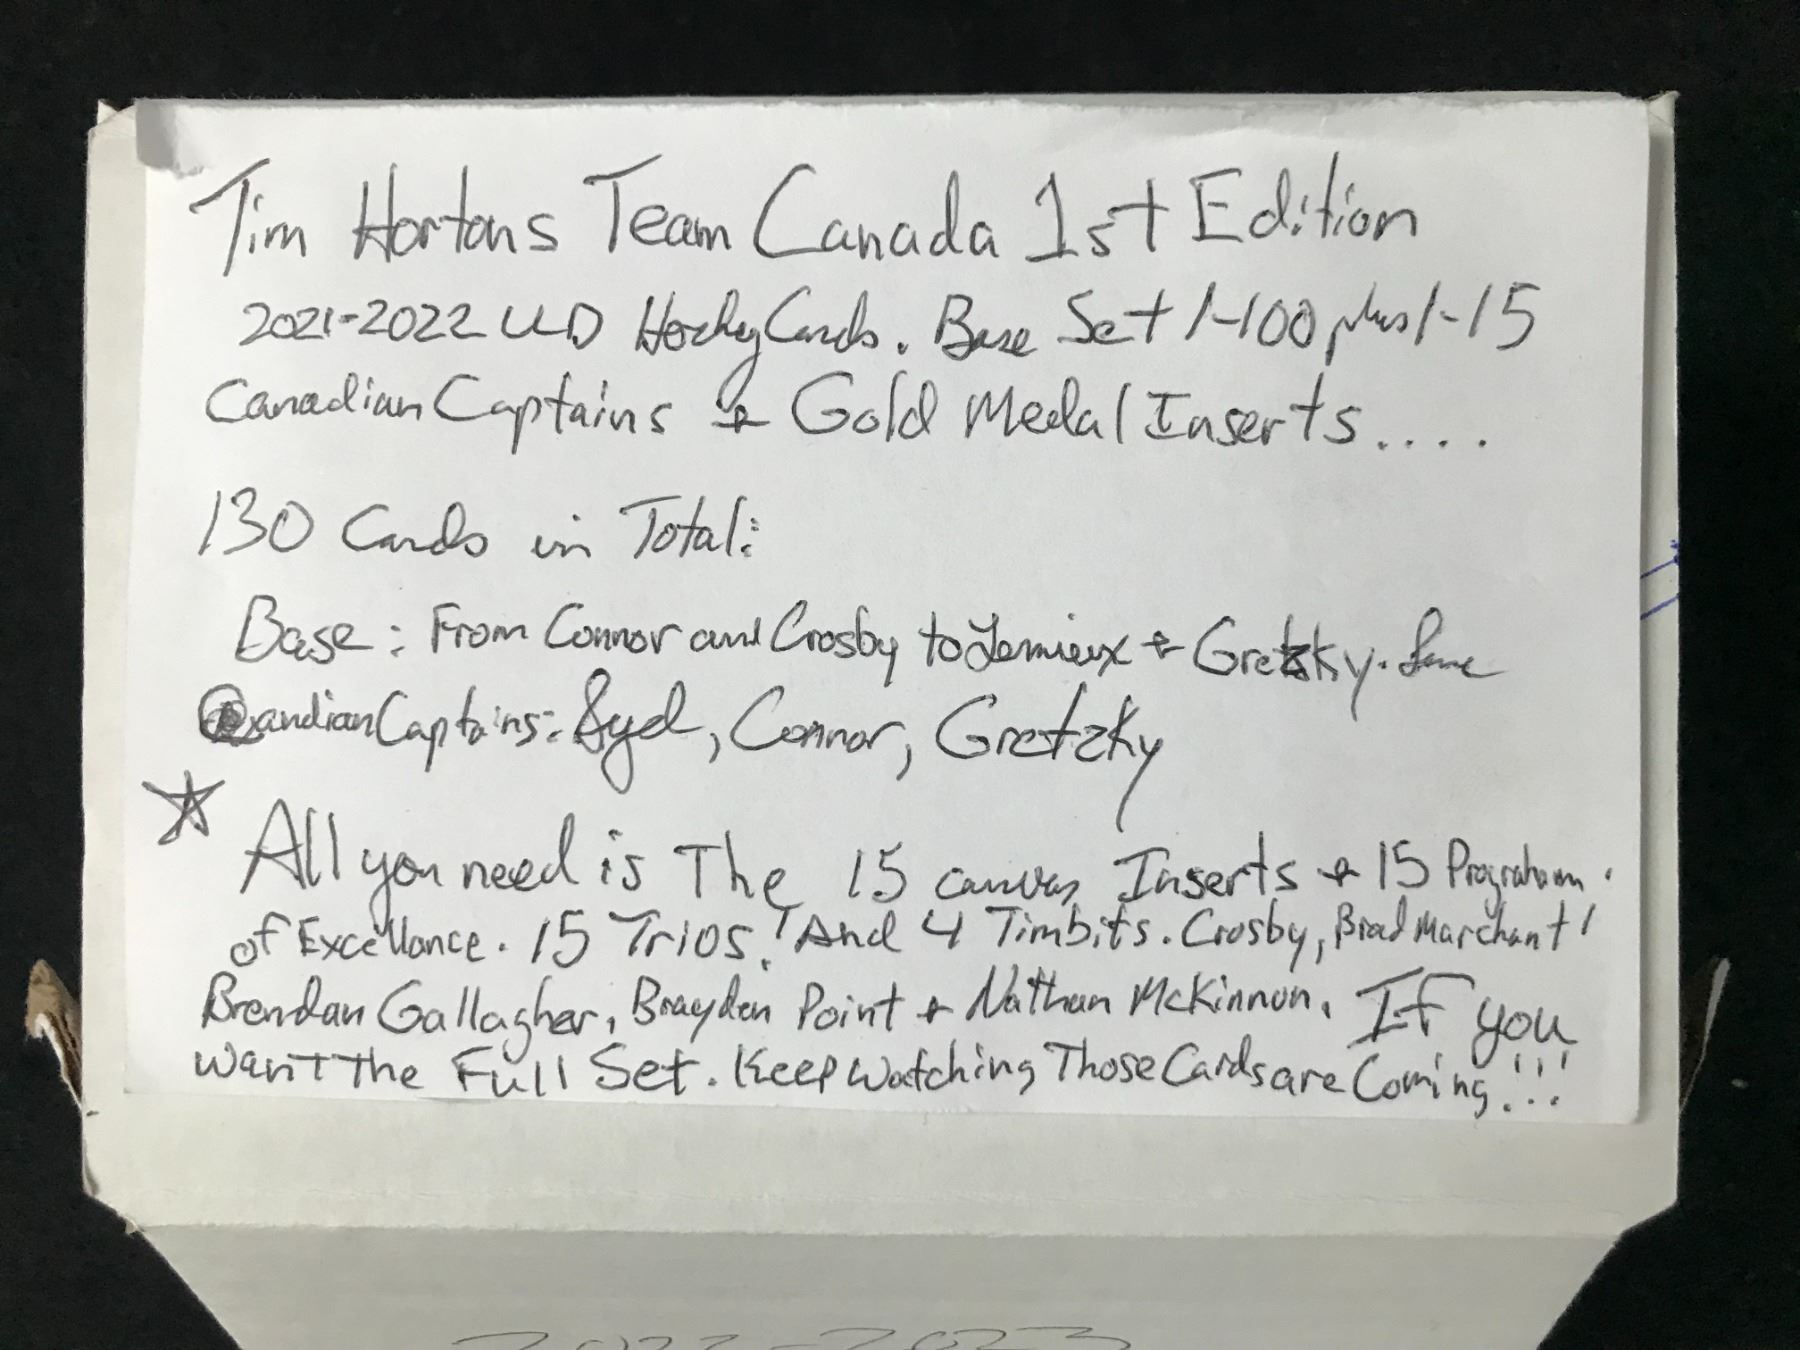 Tim Hortons Team Canada 1st Edition
2021-2022 UD Hockey Cards. Base Set 1-100 plus 1-15
Canadian Captains + Gold Medal Inserts....
130 Cards in Total:
Base: From Connor and Crosby to Lemieux + Gretzky.
Candian Captains: Syd, Connor, Gretzky
All you need is The 15 canvas Inserts + 15 Prograham
of Excellance. 15 Trios! And 4 Timbits. Crosby, Brad Marchant
Brendan Gallagher, Brayden Point + Nathan McKinnon. If you
want the Full Set. Keep Watching Those Cards are Coming!!!